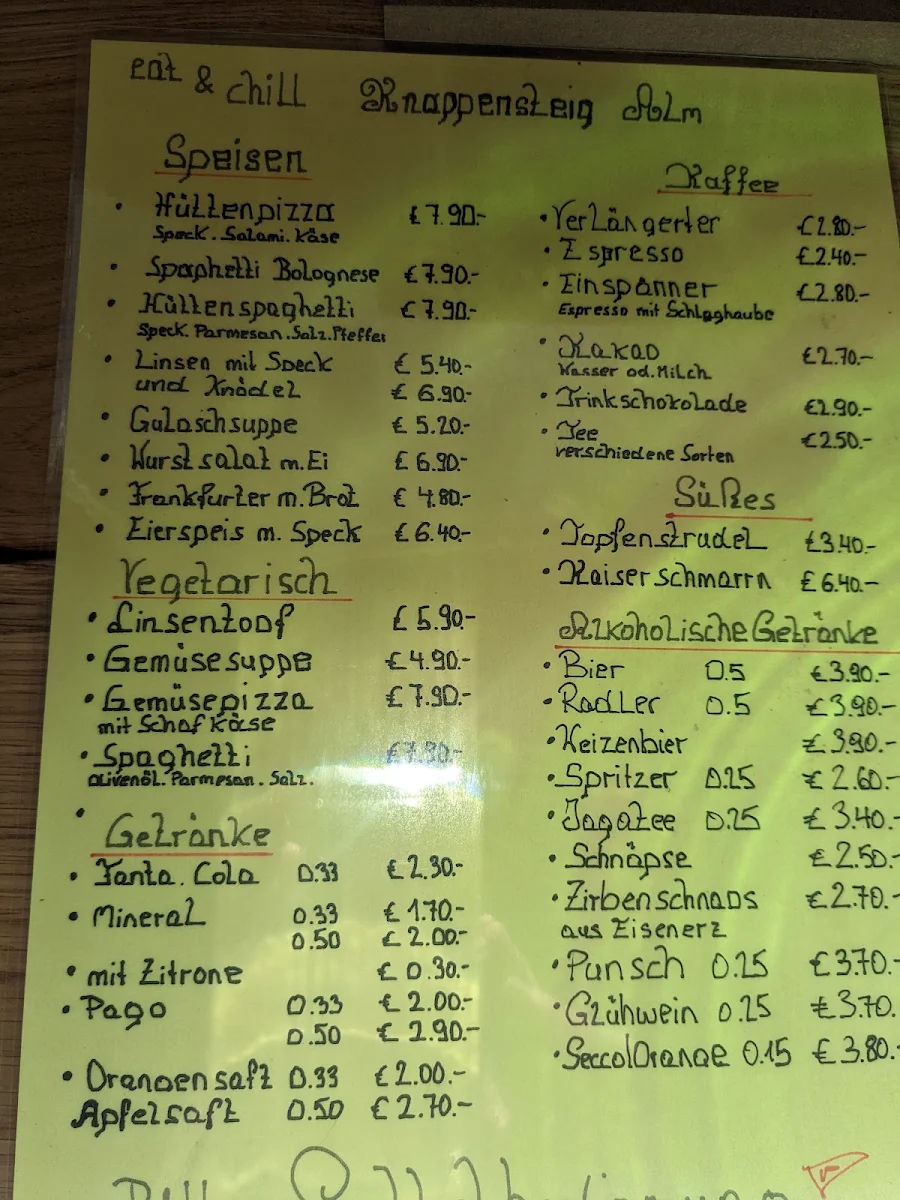 eat & chill Knappensteig Alm
Speisen
• Hüttenpizza €7.90.-
Speck. Salami. Käse
• Spaghetti Bolognese €7.90.-
• Hüttenspaghetti €7.90.-
Speck. Parmesan. Salz. Pfeffer
• Linsen mit Speck € 5.40.-
und Knödel € 6.90.-
• Gulaschsuppe € 5.20.-
• Wurstsalat m. Ei € 6.90.-
• Frankfurter m. Brot € 4.80.-
• Eierspeis m. Speck € 6.40.-
Vegetarisch
• Linsentopf € 5.90.-
• Gemüsesuppe €4.90.-
• Gemüsepizza €7.90.-
mit Schafkäse
• Spaghetti €7.90.-
Olivenöl. Parmesan. Salz.
•
Getränke
• Fanta. Cola 0.33 €2.30.-
• Mineral 0.33 € 1.70.-
0.50 € 2.00.-
• mit Zitrone € 0.30.-
• Pago 0.33 € 2.00.-
0.50 € 2.90.-
• Orangensaft 0.33 €2.00.-
Apfelsaft 0.50 € 2.70.-
Kaffee
• Verlängerter €2.80.-
• Espresso €2.40.-
• Einspänner €2.80.-
Espresso mit Schlaghaube
• Kakao €2.70.-
Wasser od. Milch
• Trinkschokolade €2.90.-
• Tee €2.50.-
verschiedene Sorten
Süßes
• Topfenstrudel €3.40.-
• Kaiserschmarrn €6.40.-
Alkoholische Getränke
• Bier 0.5 €3.90.-
• Radler 0.5 €3.90.-
• Weizenbier €3.90.-
• Spritzer 0.25 € 2.60.-
• Jagatee 0.25 € 3.40.-
• Schnäpse €2.50.-
• Zirbenschnaps €2.70.-
aus Eisenerz
• Punsch 0.25 €3.70.-
• Glühwein 0.25 €3.70.
• SeccolOrange 0.15 €3.80.-